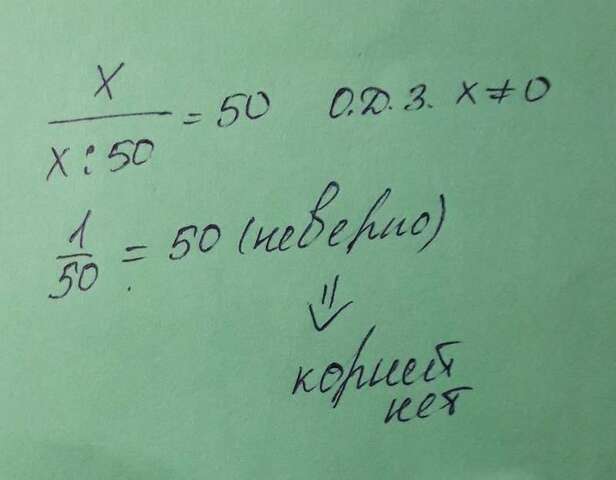 x
x : 50 = 50 О.Д.З. x ≠ 0
1
50 = 50 (неверно)
⇓
корней
нет